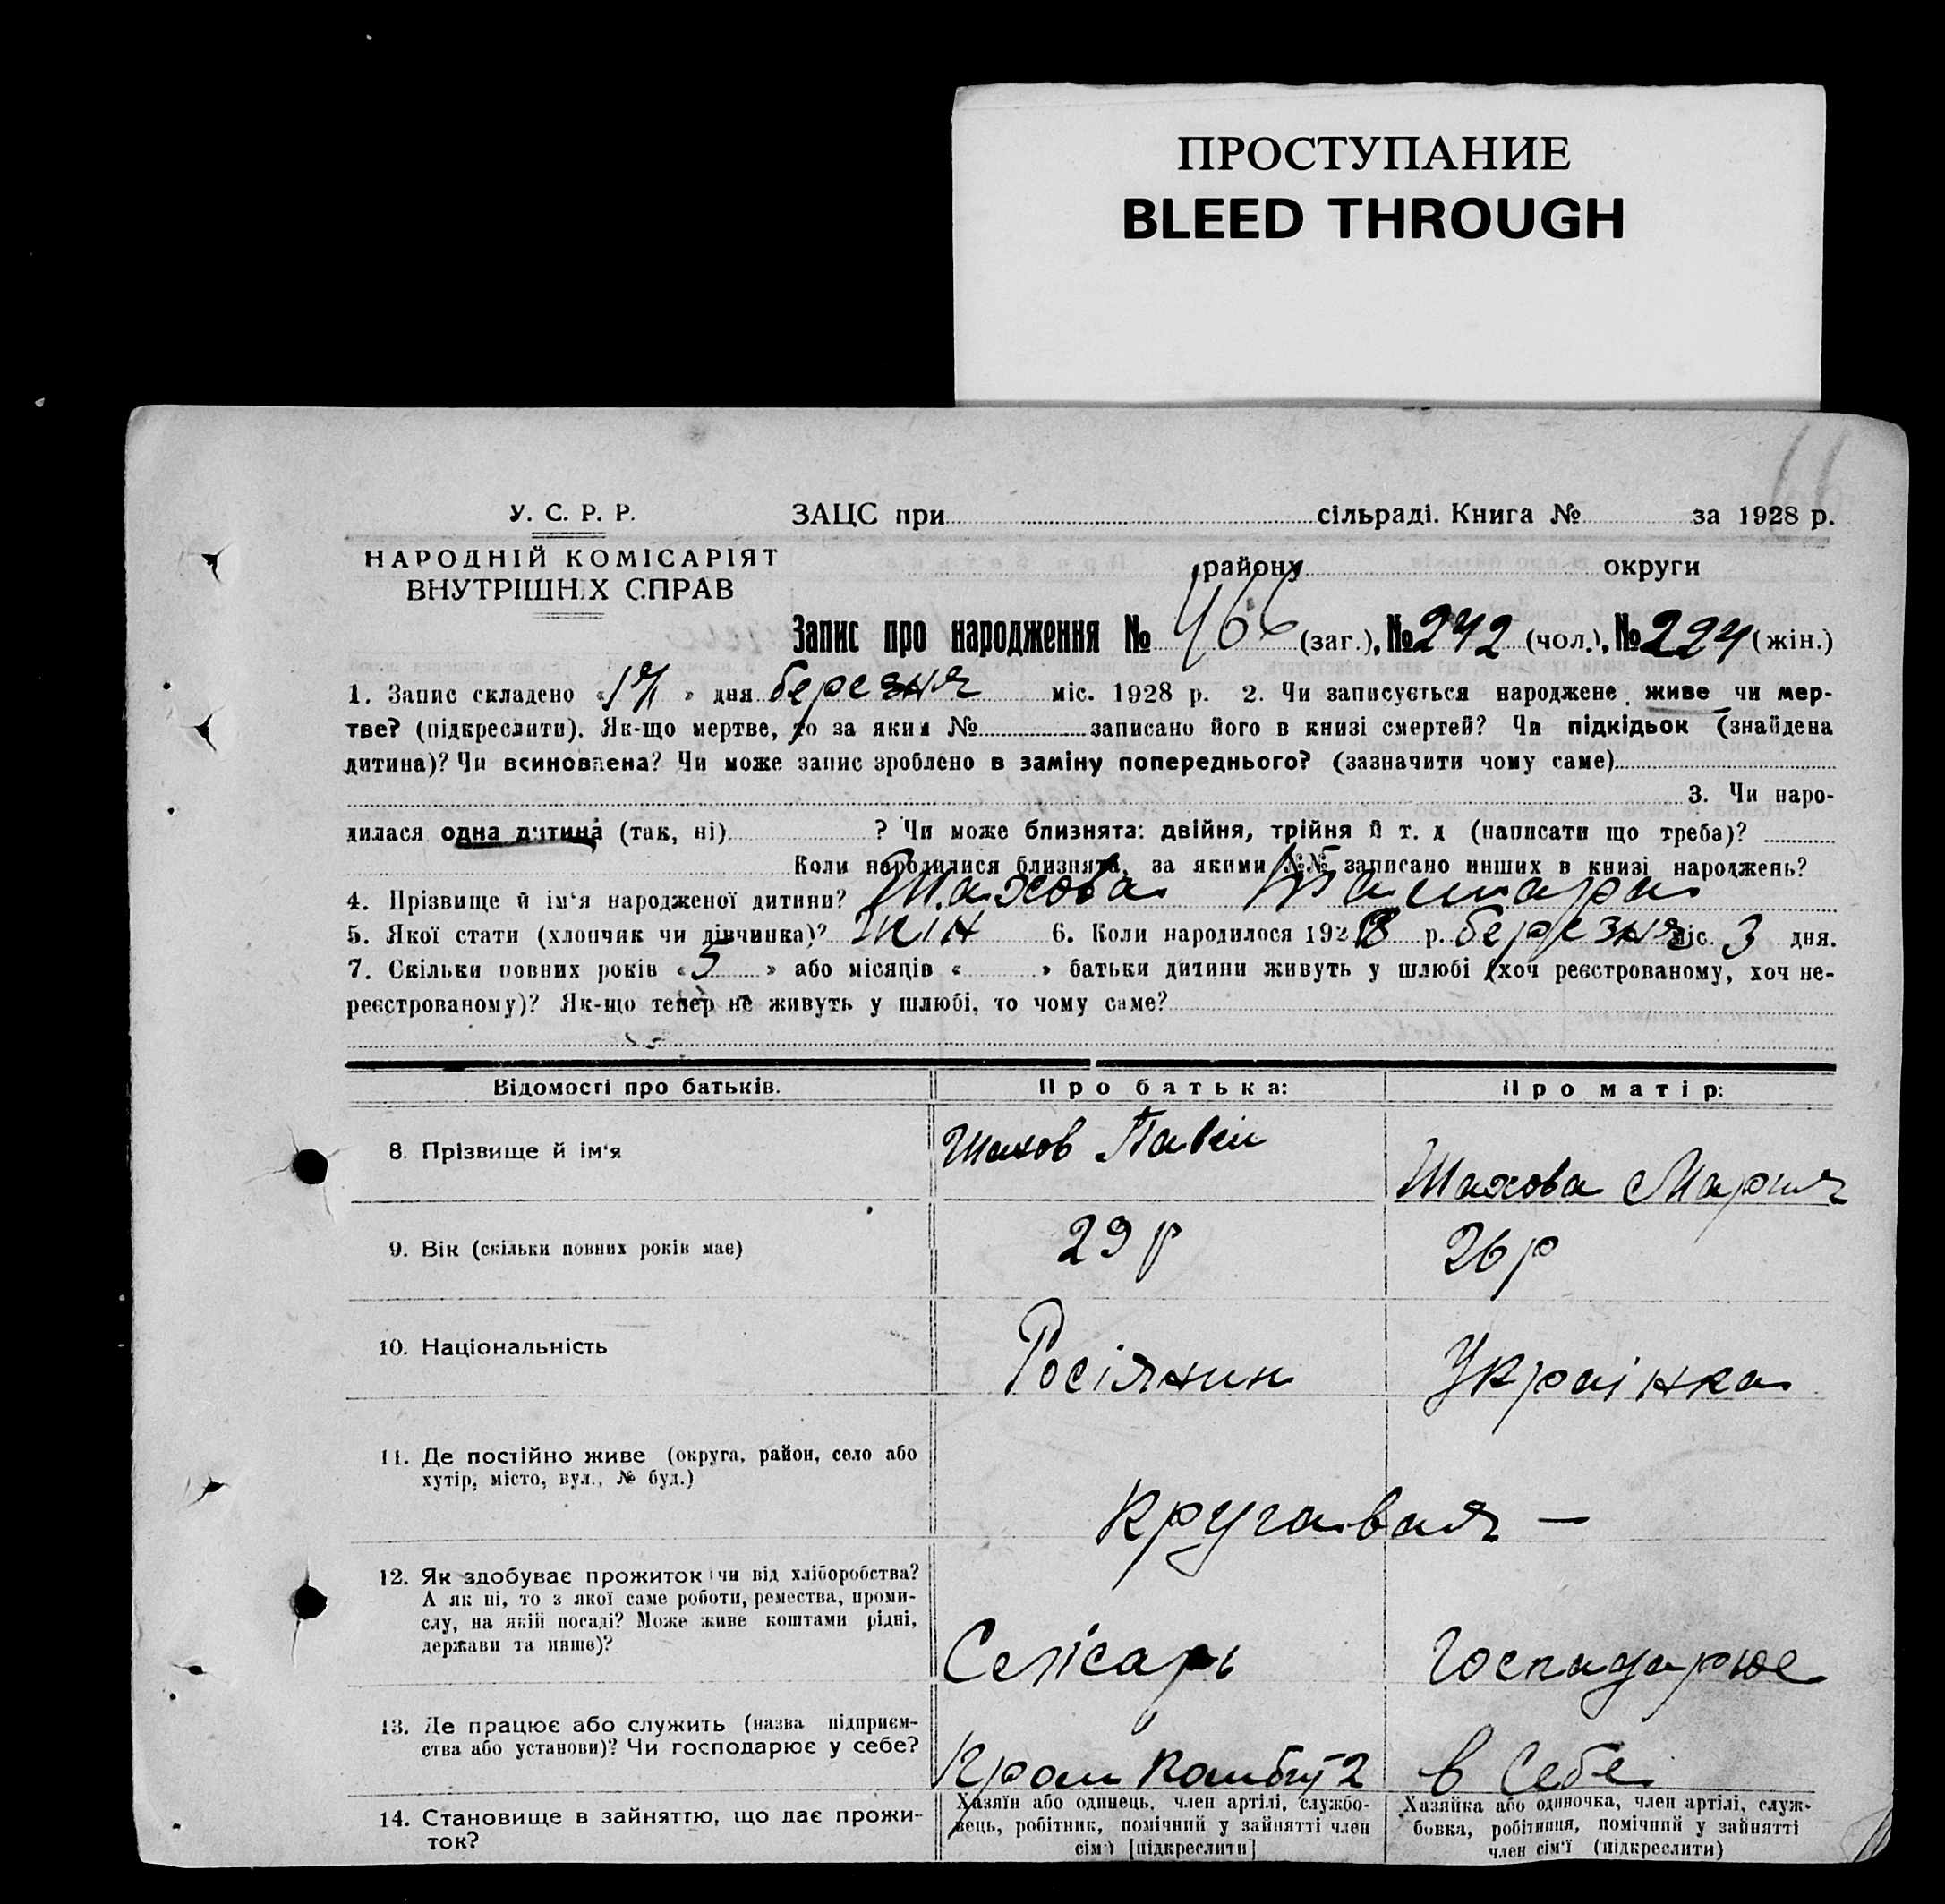 ПРОСТУПАНИЕ
BLEED THROUGH
66
У. С. Р. Р.
ЗАЦС при сільраді. Книга № за 1928 р.
НАРОДНІЙ КОМІСАРІЯТ
ВНУТРІШНІХ СПРАВ
району округи
Запис про народження № 466 (заг.), № 242 (чол.), № 224 (жін.)
1. Запис складено «17» дня березня міс. 1928 р. 2. Чи записується народжене живе чи мер-
тве? (підкреслити). Як-що мертве, то за яким № записано його в книзі смертей? Чи підкідьок (знайдена
дитина)? Чи всиновлена? Чи може запис зроблено в заміну попереднього? (зазначити чому саме)
3. Чи наро-
дилася одна дитина (так, ні) ? Чи може близнята: двійня, трійня й т. д (написати що треба)?
Коли народилися близнята, за якими №№ записано инших в книзі народжень?
4. Прізвище й ім'я народженої дитини? Шахова Тамара
5. Якої стати (хлопчик чи дівчинка)? жін 6. Коли народилося 1928 р. березня міс. 3 дня.
7. Скільки повних років «5» або місяців « » батьки дитини живуть у шлюбі (хоч реєстрованому, хоч не-
реєстрованому)? Як-що тепер не живуть у шлюбі, то чому саме?
Відомості про батьків. Про батька: Про матір:
8. Прізвище й ім'я Шахов Шахова Мария
9. Вік (скільки повних років має) 29 р 26 р
10. Національність Росіянин Украінка
11. Де постійно живе (округа, район, село або
хутір, місто, вул., № буд.)
12. Як здобуває прожиток чи від хліборобства?
А як ні, то з якої саме роботи, ремества, проми-
слу, на якій посаді? Може живе коштами рідні,
держави та инше)?
Господарює
13. Де працює або служить (назва підприєм-
ства або установи)? Чи господарює у себе?
в Себе
14. Становище в зайняттю, що дає прожи-
ток?
Хазяїн або одинець, член артілі, службо-
вець, робітник, помічний у зайнятті член
сім'ї [підкреслити]
Хазяйка або одиночка, член артілі, служ-
бовка, робітниця, помічний у зайнятті
член сім'ї (підкреслити)